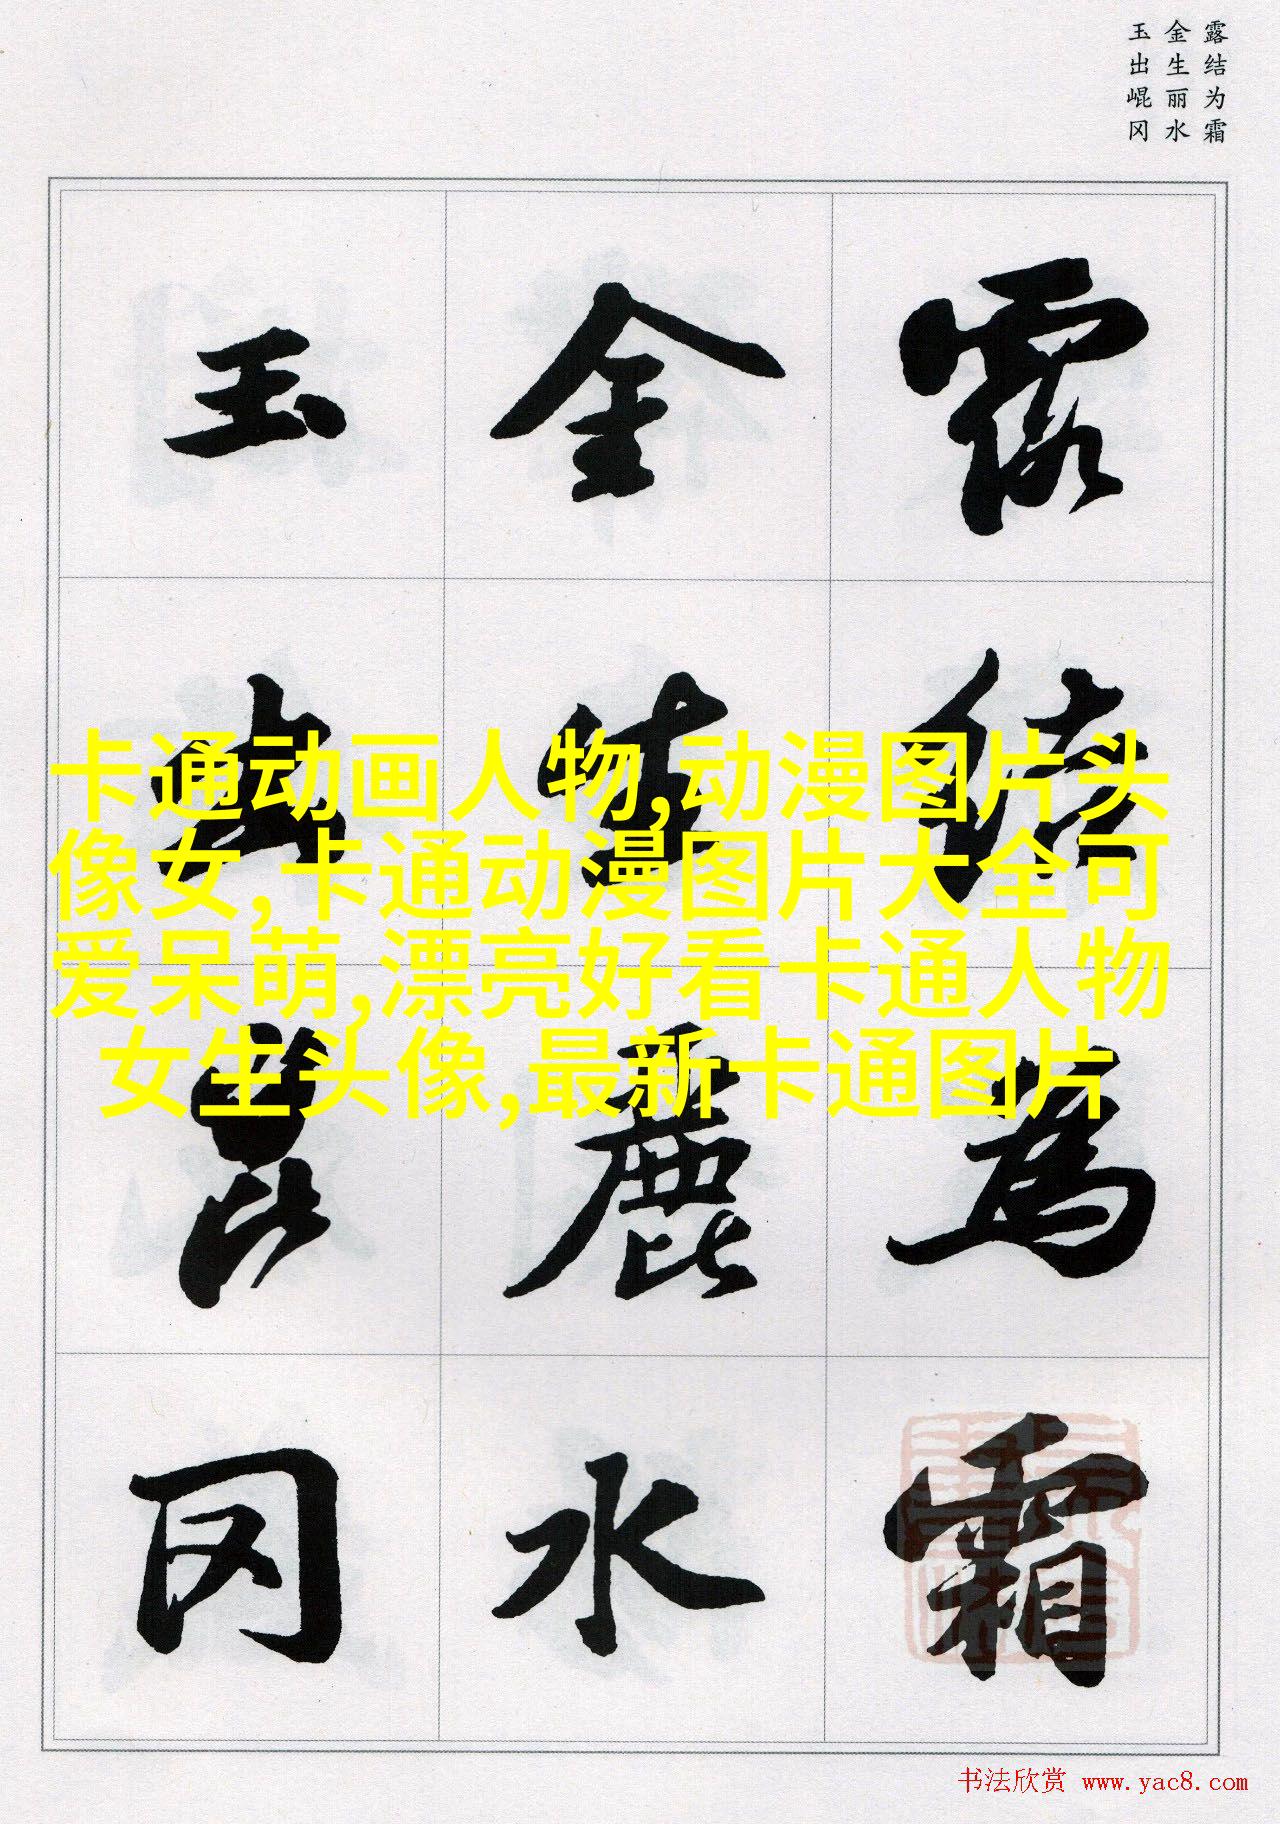 露结为霜
金生丽水
玉出崐冈
露結為霜
金生麗水
玉出崑冈
卡通动画人物,动漫图片头
像女,卡通动漫图片大全可
爱呆萌,漂亮好看卡通人物
女生头像,最新卡通图片
书法欣赏 www.yac8.com